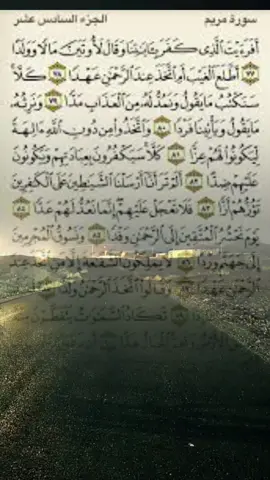 سورة مريم الجزء السادس عشر
أَفَرَءَيْتَ ٱلَّذِى كَفَرَ بِـَٔايَـٰتِنَا وَقَالَ لَأُوتَيَنَّ مَالًا وَوَلَدًا
٧٧ أَطَّلَعَ ٱلْغَيْبَ أَمِ ٱتَّخَذَ عِندَ ٱلرَّحْمَـٰنِ عَهْدًا ٧٨ كَلَّا
سَنَكْتُبُ مَا يَقُولُ وَنَمُدُّ لَهُۥ مِنَ ٱلْعَذَابِ مَدًّا ٧٩ وَنَرِثُهُۥ
مَا يَقُولُ وَيَأْتِينَا فَرْدًا ٨٠ وَٱتَّخَذُوا۟ مِن دُونِ ٱللَّهِ ءَالِهَةً
لِّيَكُونُوا۟ لَهُمْ عِزًّا ٨١ كَلَّا سَيَكْفُرُونَ بِعِبَادَتِهِمْ وَيَكُونُونَ
عَلَيْهِمْ ضِدًّا ٨٢ أَلَمْ تَرَ أَنَّآ أَرْسَلْنَا ٱلشَّيَـٰطِينَ عَلَى ٱلْكَـٰفِرِينَ
تَؤُزُّهُمْ أَزًّا ٨٣ فَلَا تَعْجَلْ عَلَيْهِمْ إِنَّمَا نَعُدُّ لَهُمْ عَدًّا ٨٤
يَوْمَ نَحْشُرُ ٱلْمُتَّقِينَ إِلَى ٱلرَّحْمَـٰنِ وَفْدًا ٨٥ وَنَسُوقُ ٱلْمُجْرِمِينَ
إِلَىٰ جَهَنَّمَ وِرْدًا ٨٦ لَّا يَمْلِكُونَ ٱلشَّفَـٰعَةَ إِلَّا مَنِ ٱتَّخَذَ عِندَ
ٱلرَّحْمَـٰنِ عَهْدًا ٨٧ وَقَالُوا۟ ٱتَّخَذَ ٱلرَّحْمَـٰنُ وَلَدًا
تَكَادُ ٱلسَّمَـٰوَٰتُ يَتَفَطَّرْنَ مِنْهُ